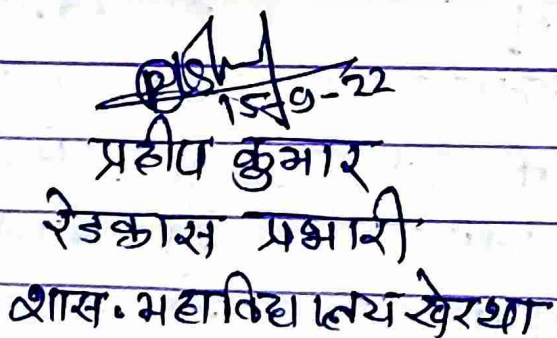 15-9-22
प्रदीप कुमार
रेडक्रास प्रभारी
शास. महाविद्यालय खेरथा